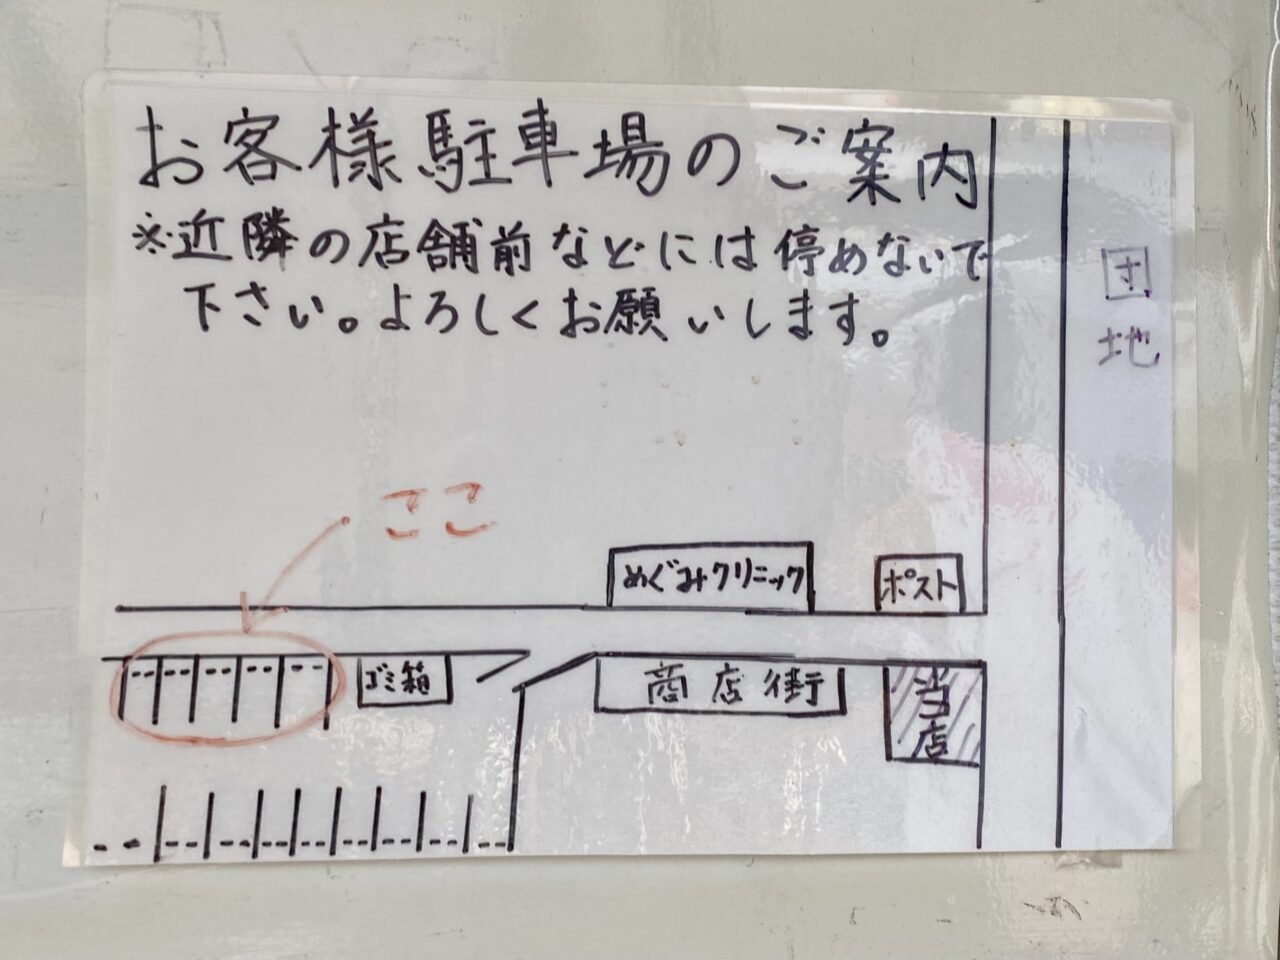 お客様駐車場のご案内
※近隣の店舗前などには停めないで
下さい。よろしくお願いします。
団地
ここ
めぐみクリニック
ポスト
ゴミ箱
商店街
当店